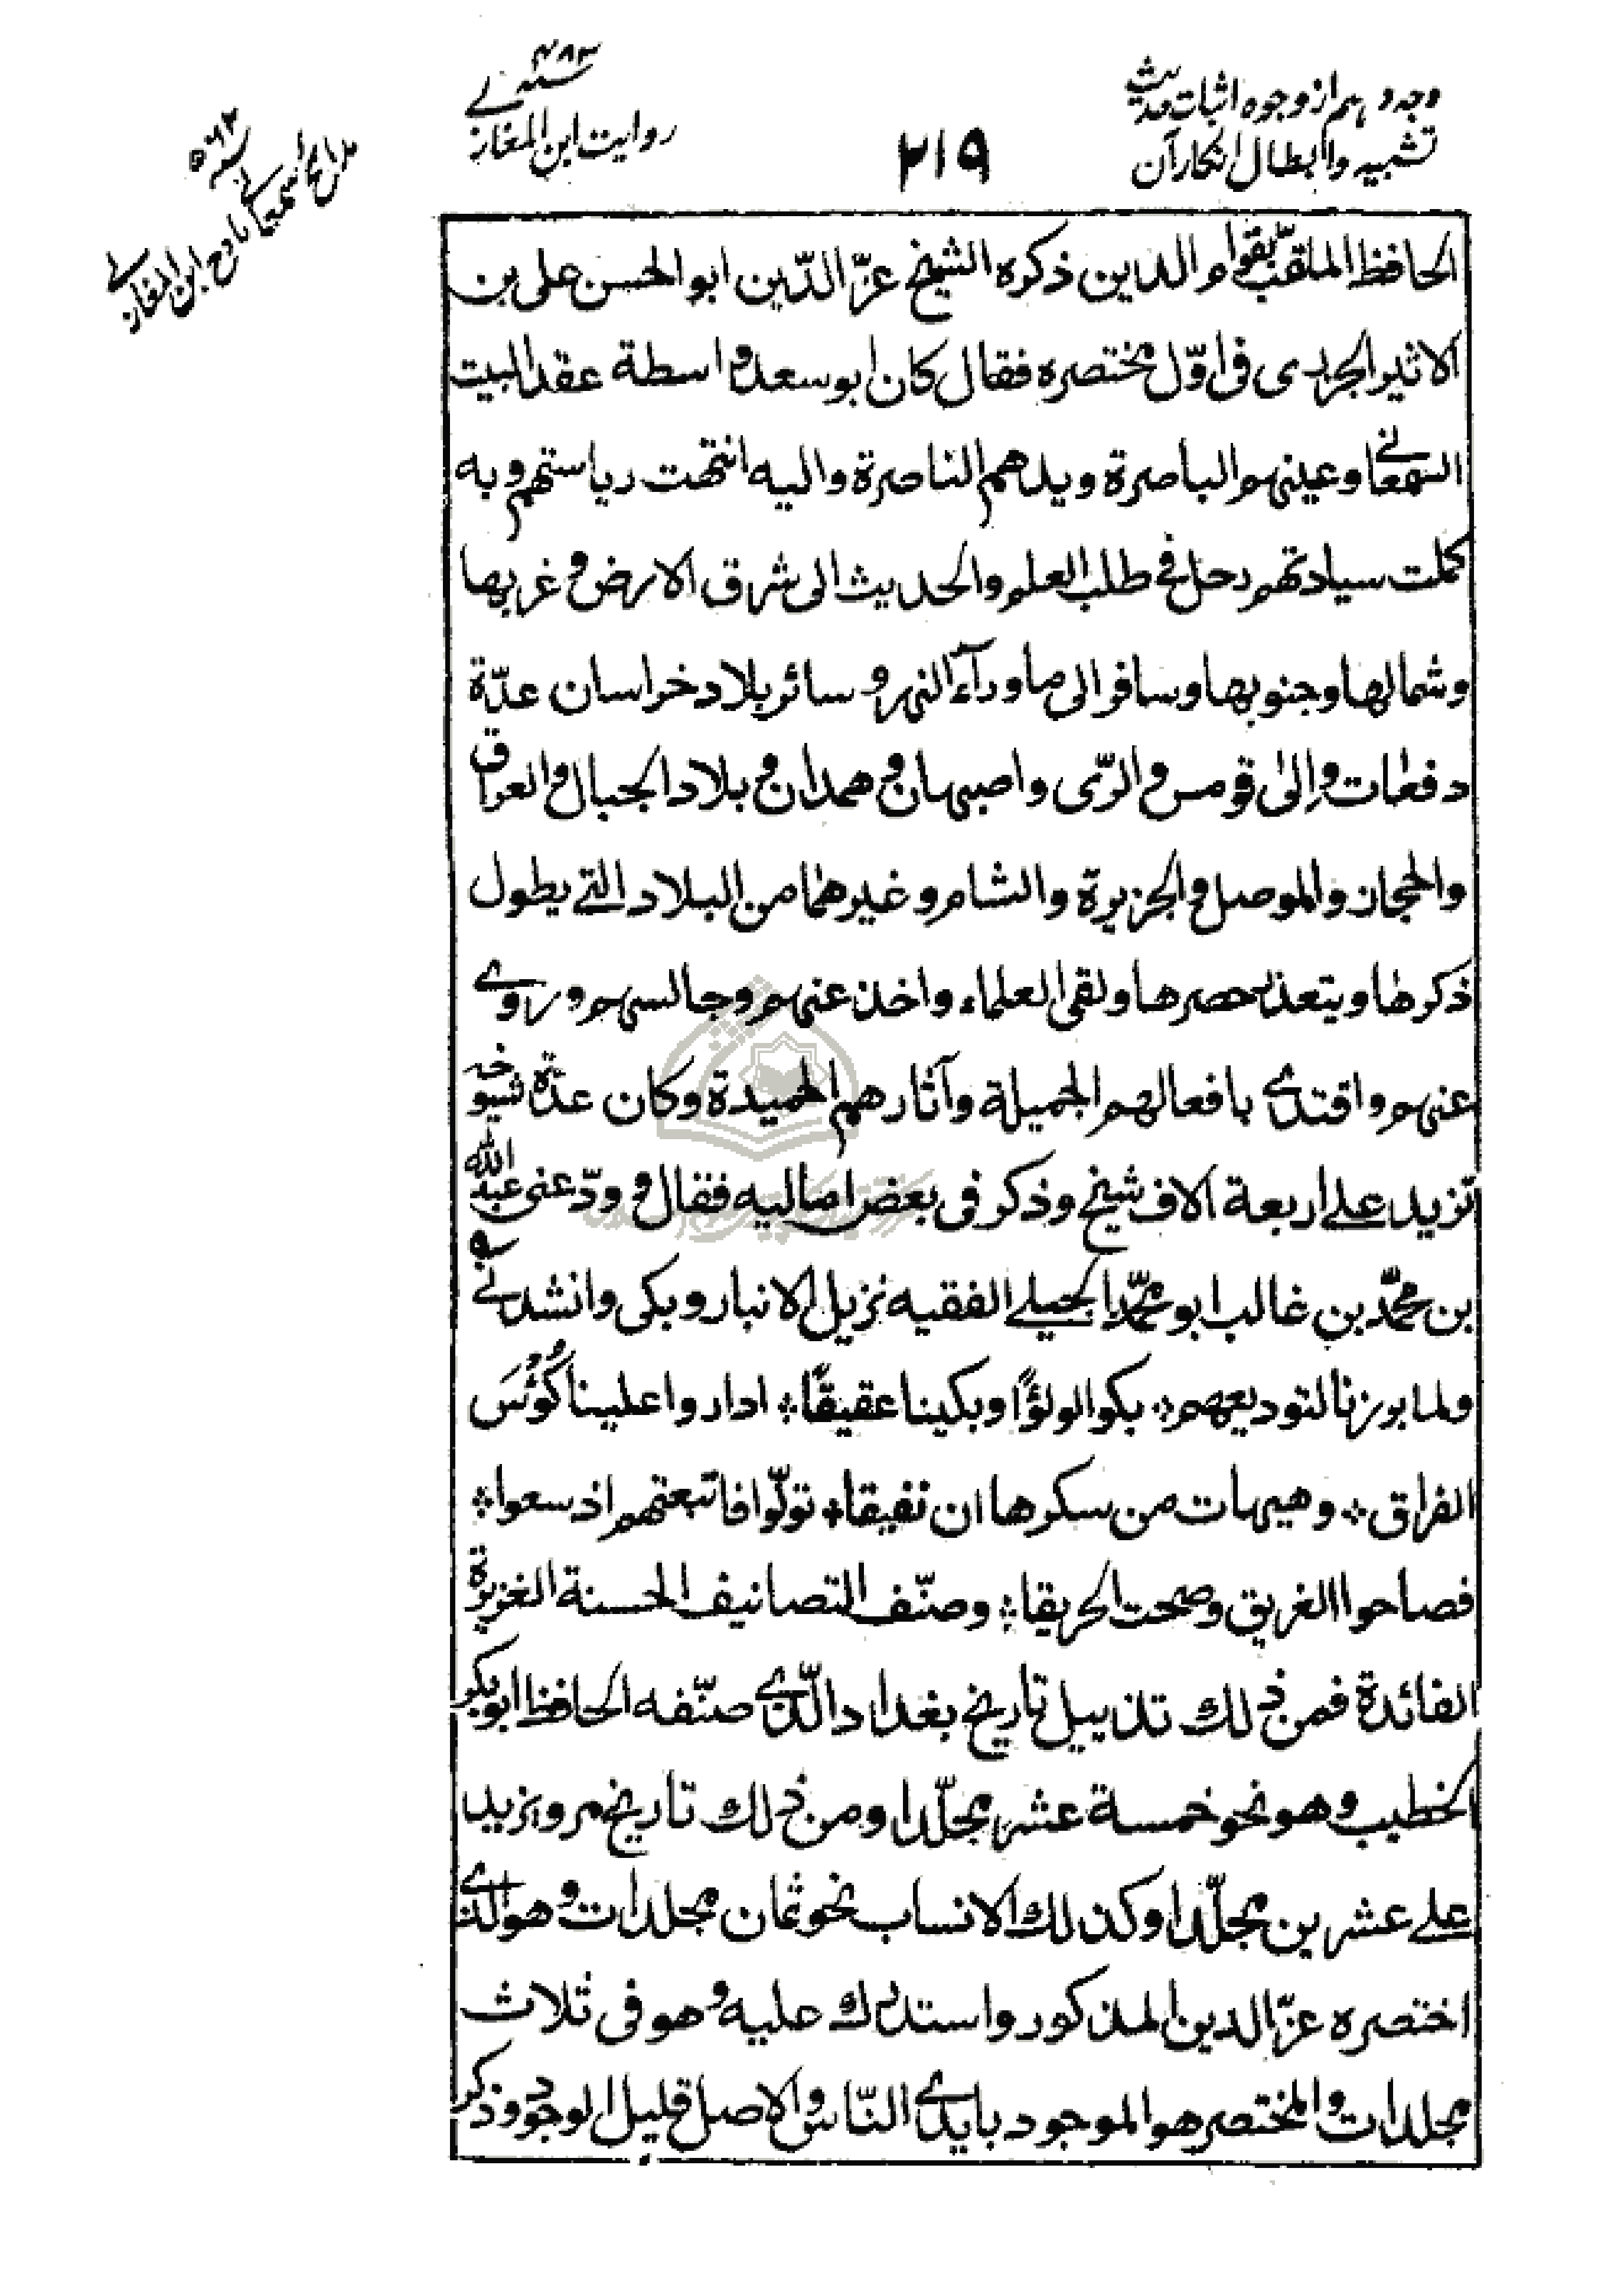 وجه دهم از وجوه اثبات حدیث
تشبیه وابطال انکار آن
۲۱۹
سنه ۴۸۳
روایت ابن المغازلے
سنه ۵۶۲
مادح ابن المغازلے
الحافظ الملقب بقوام الدين ذكره الشيخ عزّ الدّين ابو الحسن على بن
الاثير الجزرى فى اوّل مختصره فقال كان ابو سعد واسطة عقد البيت
السمعانے وعينهم الباصرة ويدهم الناصرة واليه انتهت رياستهم وبه
كملت سيادتهم رحل فے طلب العلم والحديث الى شرق الارض وغربها
وشمالها وجنوبها وسافر الى ما ورآء النهر وسائر بلاد خراسان عدّة
دفعات وإلى قومس والرّى واصبهان وهمدان وبلاد الجبال والعراق
والحجاز والموصل والجزيرة والشام وغيرها من البلاد التے يطول
ذكرها ويتعذر حصرها ولقى العلماء واخذ عنهم وجالسهم وروے
عنهم واقتدے بافعالهم الجميلة وآثارهم الحميدة وكان عدّة شيوخه
تزيد علے اربعة الاف شيخ وذكر فى بعض اماليه فقال وودّعنى عبد الله
بن محمّد بن غالب ابو محمّد الجيلے الفقيه نزيل الانبار وبكى وانشدنے
ولما برزنا لتوديعهم ؞ بكوا لولؤًا وبكينا عقيقًا ؞ اداروا علينا كُؤُسَ
الفراق ؞ وهيهات من سكرها ان نفيقا ؞ تولّوا فاتبعتهم ادمعوا ؞
فصاحوا الغريق وصحت الحريقا ؞ وصنّف التصانيف الحسنة الغزيرة
الفائدة فمن ذلك تذييل تاريخ بغداد الّذے صنّفه الحافظ ابو بكر
الخطيب وهو نحو خمسة عشر مجلّدا ومن ذلك تاريخ مرو يزيد
علے عشرين مجلّدا وكذلك الانساب نحو ثمان مجلدات وهو الذے
اختصره عزّ الدين المذكور واستدرك عليه وهو فى ثلاث
مجلدات والمختصر هو الموجود بايدے النّاس والاصل قليل الوجود وذكر